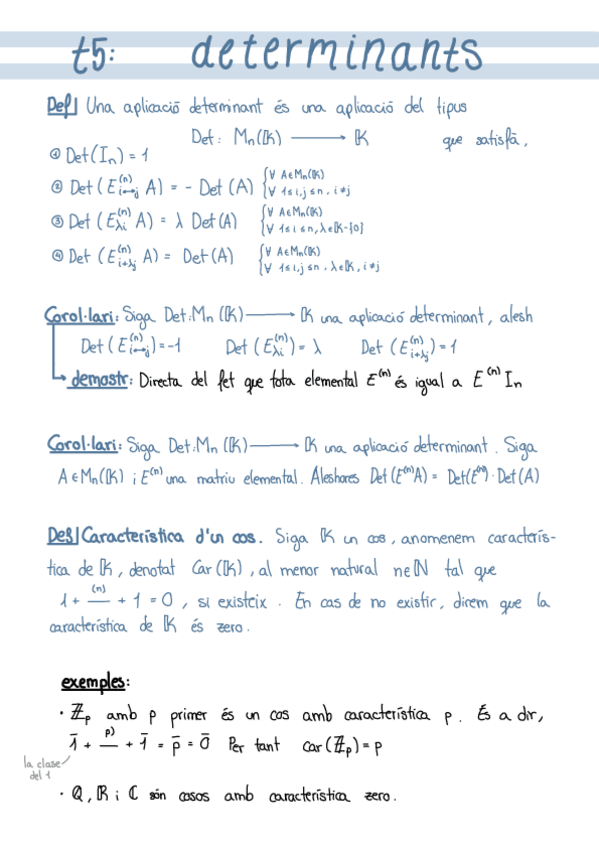 t5: determinants
Def| Una aplicació determinant és una aplicació del tipus
Det: Mn(𝕂) ⟶ 𝕂 que satisfà,
① Det(In) = 1
② Det(E^(n)_{i↔j} A) = - Det(A) {∀ A∈Mn(𝕂) ∀ 1≤i,j≤n, i≠j
③ Det(E^(n)_{λi} A) = λ Det(A) {∀ A∈Mn(𝕂) ∀ 1≤i≤n, λ∈𝕂-{0}
④ Det(E^(n)_{i+λj} A) = Det(A) {∀ A∈Mn(𝕂) ∀ 1≤i,j≤n, λ∈𝕂, i≠j
Corol·lari: Siga Det:Mn(𝕂) ⟶ 𝕂 una aplicació determinant, alesh
Det(E^(n)_{i↔j})=-1 Det(E^(n)_{λi})=λ Det(E^(n)_{i+λj})=1
demostr: Directa del fet que tota elemental E^(n) és igual a E^(n) In
Corol·lari: Siga Det:Mn(𝕂) ⟶ 𝕂 una aplicació determinant. Siga
A∈Mn(𝕂) i E^(n) una matriu elemental. Aleshores Det(E^(n)A) = Det(E^(n))·Det(A)
Def| Característica d'un cos. Siga 𝕂 un cos, anomenem caracterís-
tica de 𝕂, denotat Car(𝕂), al menor natural n∈ℕ tal que
1 + (n) + 1 = 0, si existeix. En cas de no existir, direm que la
característica de 𝕂 és zero.
exemples:
· ℤp amb p primer és un cos amb característica p. És a dir,
1̄ + p) + 1̄ = p̄ = 0̄ Per tant car(ℤp)=p
la clase
del 1
· ℚ, ℝ i ℂ són cosos amb característica zero.